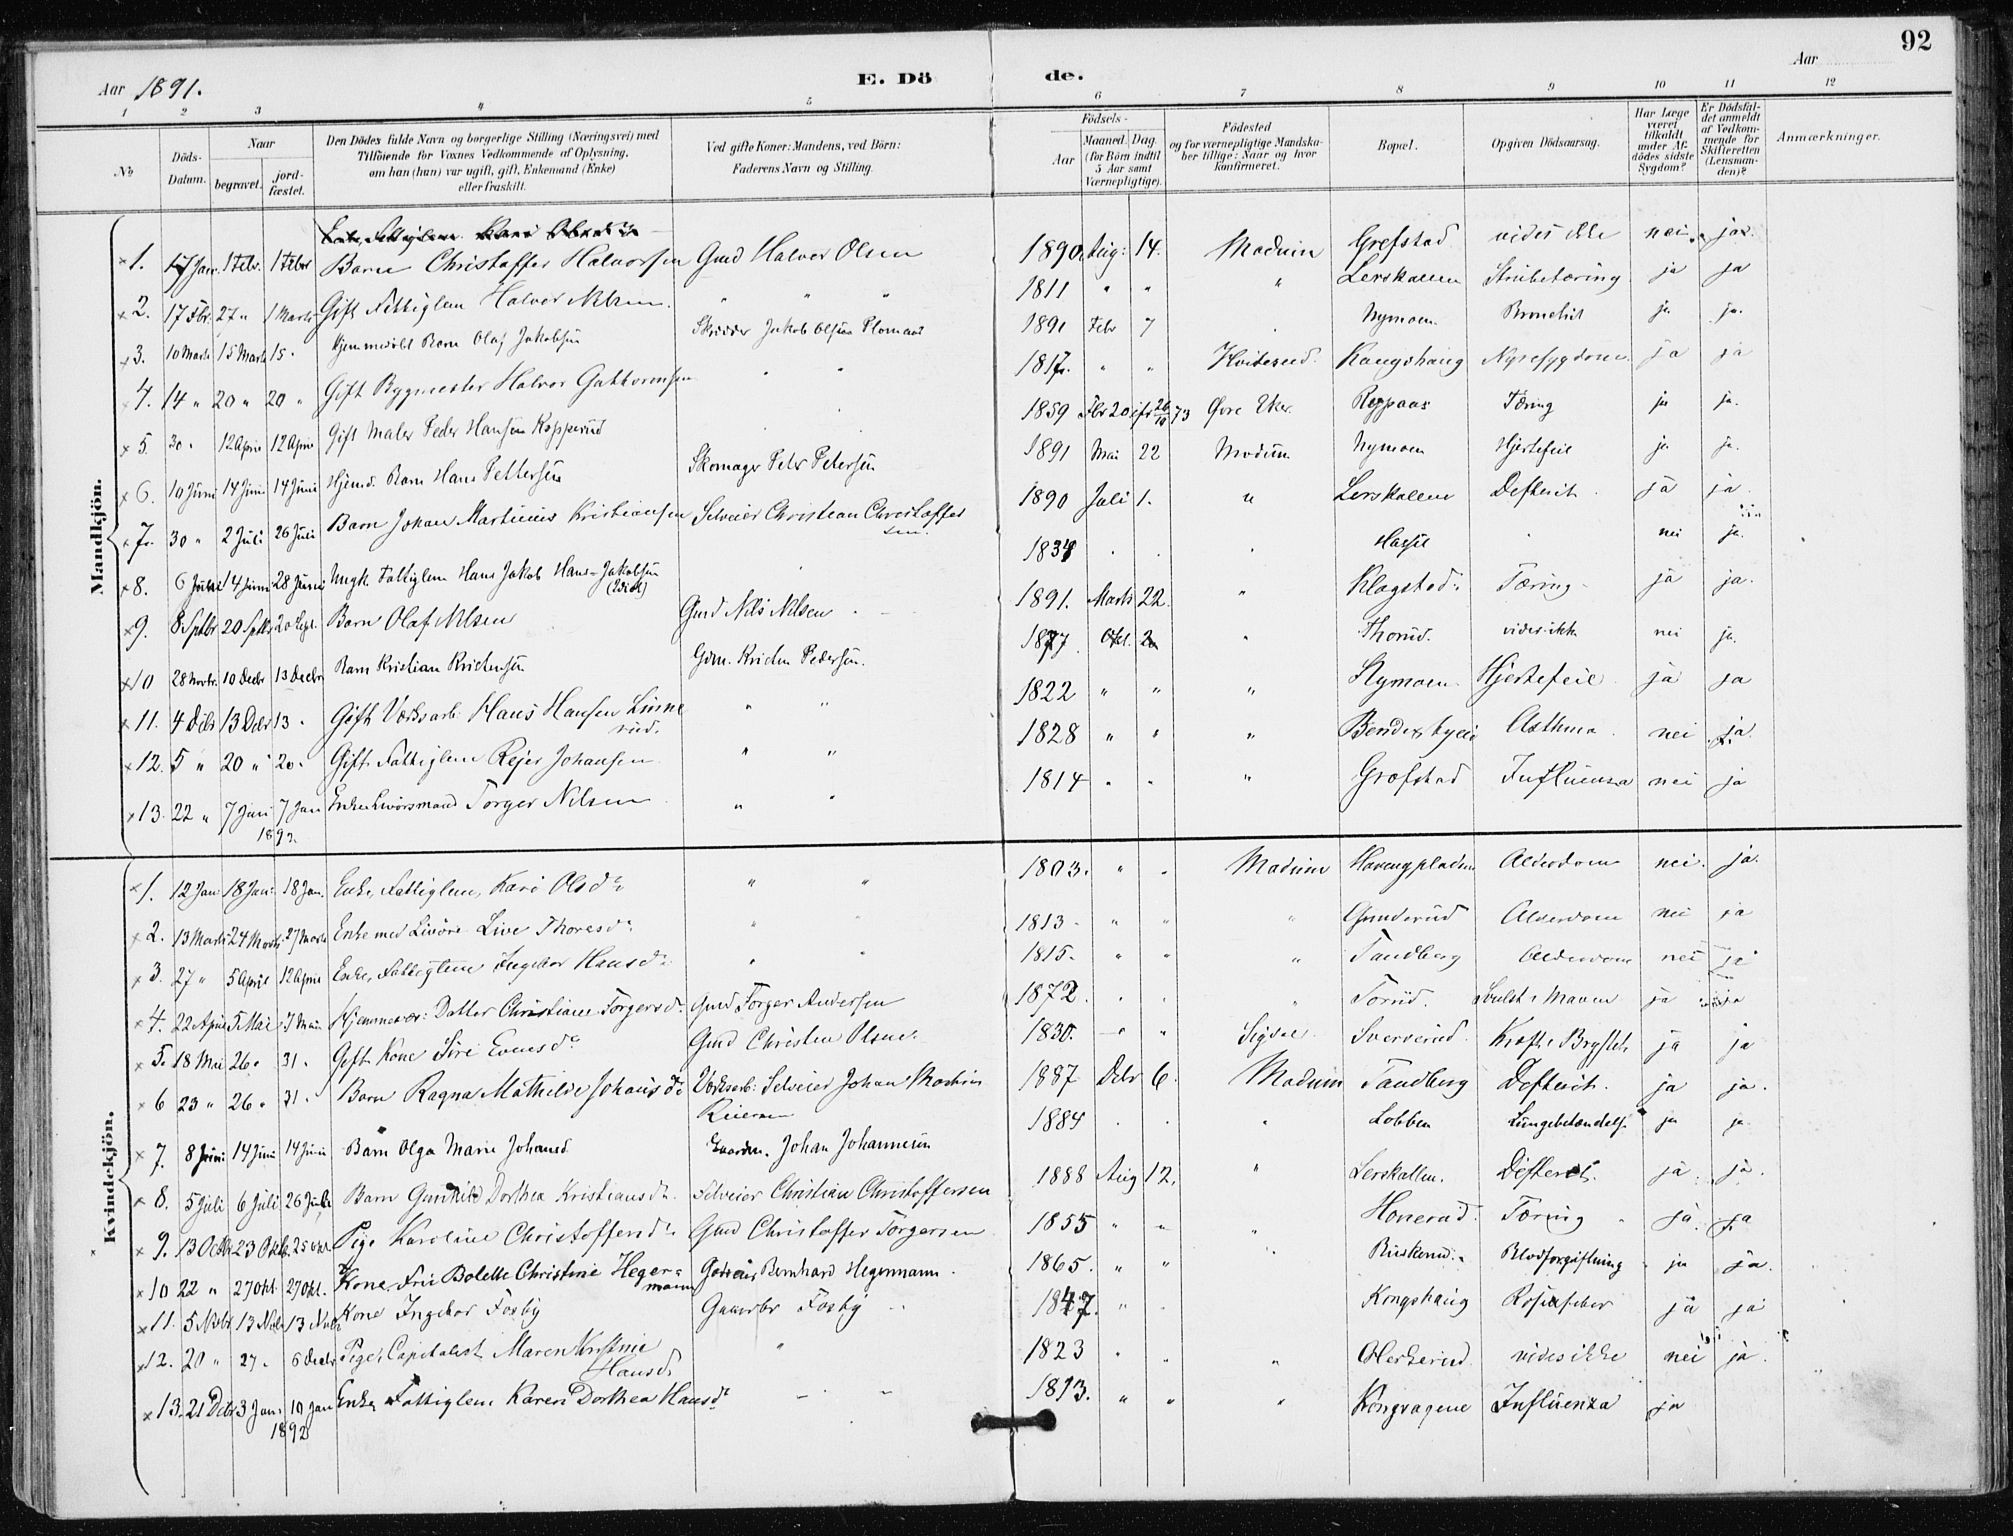 92
Aar 1891.
E. Dö de.
Aar
1 2 3 4 5 6 7 8 9 10 11 12
No
Döds-Datum.
Naar
begravet.
jord-fæstet.
Den Dödes fulde Navn og borgerlige Stilling (Næringsvei) med
Tilföiende for Voxnes Vedkommende af Oplysning,
om han (hun) var ugift, gift, Enkemand (Enke)
eller fraskilt.
Ved gifte Koner: Mandens, ved Börn:
Faderens Navn og Stilling.
Födsels-
Aar
Maaned. Dag.
(for Börn indtil
5 Aar samt
Værnepligtige).
Födested
og for værnepligtige Mandska-
ber tillige: Naar og hvor
konfirmeret.
Bopæl.
Opgiven Dödsaarsag.
Har Læge
været
tilkaldt
under Af-
dödes sidste
Sygdom?
Er Dödsfal-
det anmeldt
af Vedkom-
mende for
Skifteretten
(Lensman-
den)?
Anmærkninger.
Mandkjön.
1. 17 Jan. 1 Febr. 1 Febr Barn Christoffer Halvorsen Gmd Halvor Olsen 1890 Aug: 14. Modum Grefstad vides ikke nei ja.
2. 17 Fbr. 27 " 1 Marts Gift Fattiglem Halvor Nilsen. " " " 1811 " " " Lerskallen Strubetæring ja ja
3. 10 Marts 15 Marts 15 " Hjemmedöbt Barn Olaf Jakobsen Skrædder Jakob Olsen Plomaas 1891 Febr 7 " Nymoen Bronchit ja ja.
4. 14 " 20 " 20 " Gift Bygmester Halvor Guttormsen " " 1817. " " Hvideseid. Kongshaug Nyresygdom. ja ja
5. 30 " 12 April 12 April Gift Maler Peder Hansen Kopperud 1859 Fbr 20 cfr 26/10 73 Övre Eker. Reppaas Tæring ja ja.
6. 10 Juni 14 Juni 14 Juni Hjemd. Barn Hans Pettersen Skomager Peter Petersen 1891 Mai 22 Modum Nymoen Hjertefeil ja ja.
7. 30 " 2 Juli 26 Juli Barn Johan Martinius Kristiansen Selveier Christian Christoffersen. 1890 Juli 1. " Lerskallen Defterit. ja ja.
8. 6 Juni 14 Juni 28 Juni Ungk. Fattiglem Hans Jakob Hans-Jakobsen 1834 " " " Hassel nei ja.
9. 8 Sptbr 20 Sptbr 20 Sept. Barn Olaf Nilsen Gmd Nils Nilsen 1891. Marts 22. " Klogstad. Tæring ja ja.
10 28 Novbr. 10 Decbr 13 Decbr Barn Kristian Kristensen Gdm. Kristen Pedersen. 1877. Okt. 20 " Thorud. vides ikke nei ja.
11. 4 Dcbr 13 Dcbr 13 " Gift Værksarb. Hans Hansen Linnerud. " " 1822 " " " Nymoen. Hjertefeil. ja ja
12. 5 " 20 " 20 " Gift Fattiglem Rejer Johansen " " 1828 " " " Bendixbyeie Asthma. nei ja.
13. 22 " 7 Jan 7 Jan 1892. Enkem Livörsmand Torger Nilsen " " 1814 " " " Grefstad Influensa nei ja
Kvindekjön.
1. 12 Jan 18 Jan. 18 Jan. Enke, Fattiglem, Kari Olsdr. " " 1803. " " Modum Haveng pladsen Alderdom nei. ja.
2. 13 Marts 24 Marts 27 Marts Enke med Livöre Live Thoresdr. " " 1813 " " " Gunderud Alderdom nei ja
3. 27 " 5 April 12 April Enke, Fattiglem Ingebor Hansdr. " " 1815. " " " Tandberg Alderdom nei ja
4. 22 April 5 Mai 7 Mai Hjemmevær: Datter Christiane Torgersdr. Gmd Torger Andersen 1872. " " " Torud. Svulst i Maven ja ja
5. 18 Mai 26 " 31 " Gift Kone Siri Evensdr. Gmd Christen Olsen. 1830. " " Sigdal. Sververud. Kræft i Brystet ja ja
6 23 " 26 " 31 " Barn Ragna Mathilde Johansdr. Værksarb. Selveier Johan Martin Reiersen 1887 Dcbr 6. Modum Tandberg Defterit. ja ja.
7. 8 Juni 14 Juni 14 Juni Barn Olga Marie Johansd. Gaardm. Johan Johannesen 1884 " " " Lobben Lungebetændelse ja ja
8. 5 Juli 6 Juli 26 Juli Barn Gunhild Dorthea Kristiansdr. Selveier Christian Christoffersen 1888 Aug 12. " Lerskallen. Difterit. ja ja.
9. 13 Octbr 23 Oktb. 25 Okt. Pige Karoline Christoffersdr. Gmd Christoffer Torgersen 1855 " " " Honerud. Tæring ja. ja
10 22 " 27 Okt. 27 Okt. Kone Frú Bolette Christine Hegermann Godseier Bernhard Hegermann. 1865. " " Buskerud. Blodforgiftning ja ja.
11. 5 Novbr 13 Nvbr 13 Nvbr Kone Ingebor Fosby Gaardbr Fosby 1847. " " Kongshaug Rosenfeber ja ja
12. 20 " 27 " 6 Decbr Pige, Capitalist Maren Kristine Hansd. " 1823 " " " Heckerud vides ikke nei ja.
13. 21 Dcbr 3 Jan. 10 Jan 1892 Enke Fattiglem Karen Dorthea Hansdr 1813. " " " Kongvagene Influenza ja